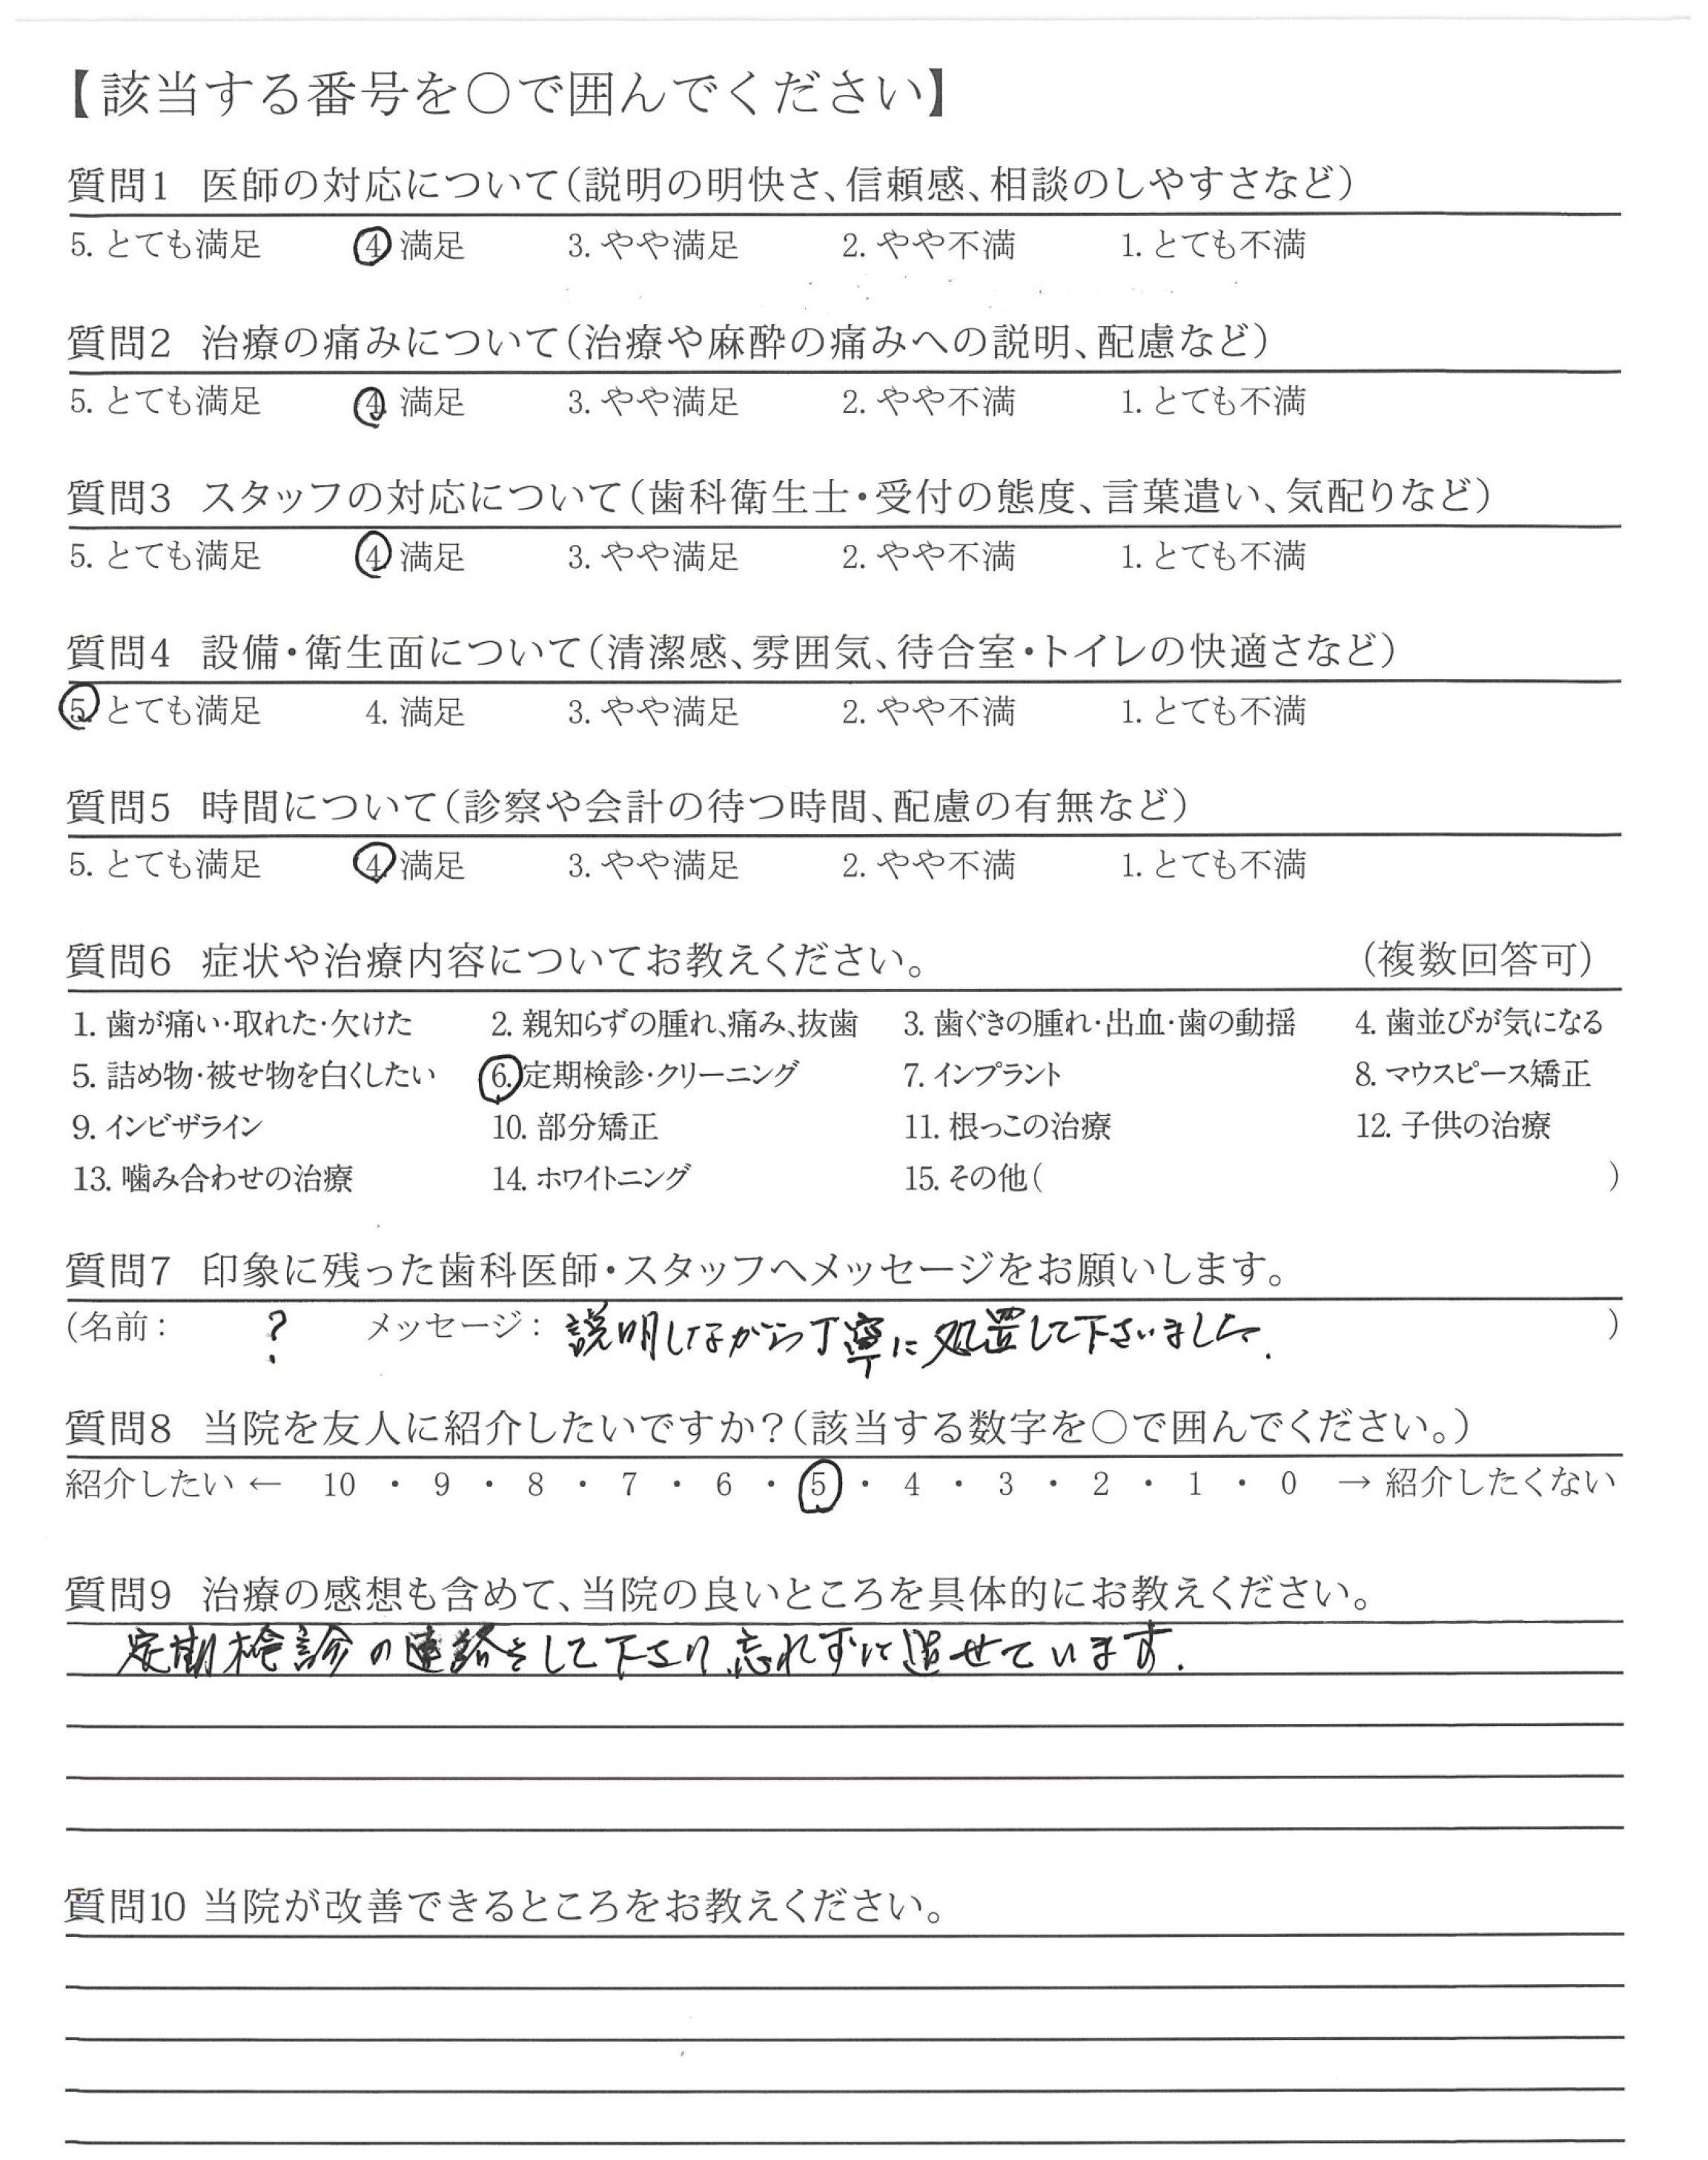 【該当する番号を○で囲んでください】
質問1 医師の対応について(説明の明快さ、信頼感、相談のしやすさなど)
5. とても満足 4. 満足 3. やや満足 2. やや不満 1. とても不満
質問2 治療の痛みについて(治療や麻酔の痛みへの説明、配慮など)
5. とても満足 4. 満足 3. やや満足 2. やや不満 1. とても不満
質問3 スタッフの対応について(歯科衛生士・受付の態度、言葉遣い、気配りなど)
5. とても満足 4. 満足 3. やや満足 2. やや不満 1. とても不満
質問4 設備・衛生面について(清潔感、雰囲気、待合室・トイレの快適さなど)
5. とても満足 4. 満足 3. やや満足 2. やや不満 1. とても不満
質問5 時間について(診察や会計の待つ時間、配慮の有無など)
5. とても満足 4. 満足 3. やや満足 2. やや不満 1. とても不満
質問6 症状や治療内容についてお教えください。 (複数回答可)
1. 歯が痛い・取れた・欠けた 2. 親知らずの腫れ、痛み、抜歯 3. 歯ぐきの腫れ・出血・歯の動揺 4. 歯並びが気になる
5. 詰め物・被せ物を白くしたい 6. 定期検診・クリーニング 7. インプラント 8. マウスピース矯正
9. インビザライン 10. 部分矯正 11. 根っこの治療 12. 子供の治療
13. 噛み合わせの治療 14. ホワイトニング 15. その他( )
質問7 印象に残った歯科医師・スタッフへメッセージをお願いします。
(名前: ? メッセージ: 説明しながら丁寧に処置して下さいました. )
質問8 当院を友人に紹介したいですか?(該当する数字を○で囲んでください。)
紹介したい ← 10 ・ 9 ・ 8 ・ 7 ・ 6 ・ 5 ・ 4 ・ 3 ・ 2 ・ 1 ・ 0 → 紹介したくない
質問9 治療の感想も含めて、当院の良いところを具体的にお教えください。
定期検診の連絡をして下さり忘れずに過せています.
質問10 当院が改善できるところをお教えください。